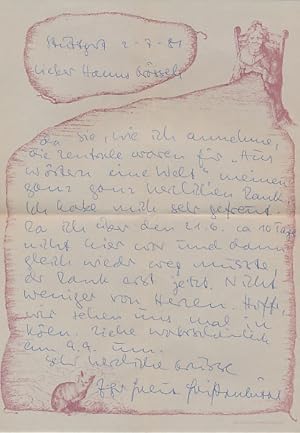 Stuttgart 2-7-81
Lieber Hanns Grössel,
da Sie, wie ich annehme,
die Zentrale waren für „Aus
Wörtern eine Welt", meinen
ganz ganz herzlichen Dank
Ich habe mich sehr gefreut.
Da ich über den 21.6. ca 10 Tage
nicht hier war und dann
gleich wieder weg musste,
der Dank erst jetzt. Nicht
weniger von Herzen. Hoffe,
wir sehen uns mal in
Köln. Ziehe wahrscheinlich
am 9.9. um.
Sehr herzliche Grüsse
Ihr Helmut Heißenbüttel